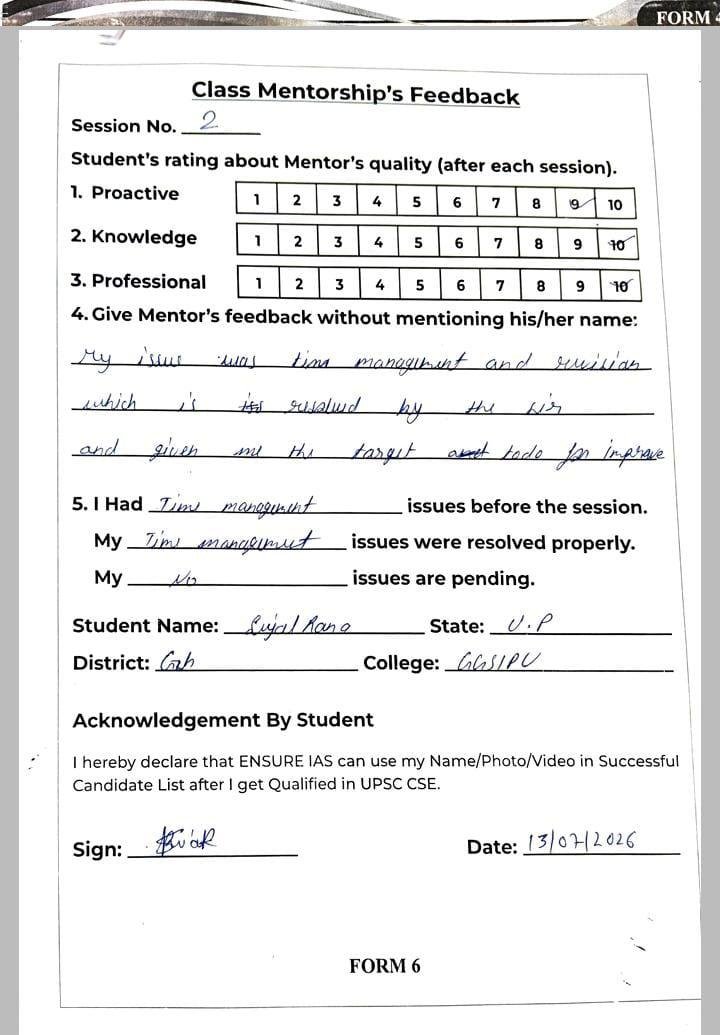 FORM
Class Mentorship's Feedback
Session No. 2
Student's rating about Mentor's quality (after each session).
1. Proactive 1 2 3 4 5 6 7 8 9 10
2. Knowledge 1 2 3 4 5 6 7 8 9 10
3. Professional 1 2 3 4 5 6 7 8 9 10
4. Give Mentor's feedback without mentioning his/her name:
My issue was time management and revision
which is resolved by the sir
and given me the target to do for improve
5. I Had Time management issues before the session.
My Time management issues were resolved properly.
My No issues are pending.
Student Name: Sujal Rana State: U.P
District: College: GGSIPU
Acknowledgement By Student
I hereby declare that ENSURE IAS can use my Name/Photo/Video in Successful
Candidate List after I get Qualified in UPSC CSE.
Sign: Date: 13/07/2026
FORM 6